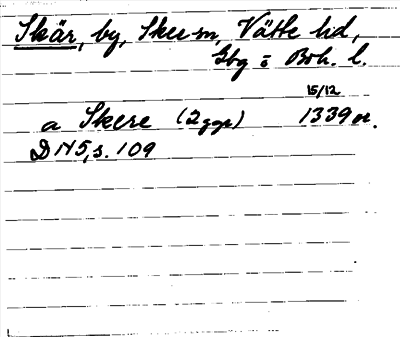 Skär, by, Skee sn, Vätte hd,
Gbg o Boh. l.
15/12
a Skere (2 ggr) 1339 or.
DN 5, s. 109